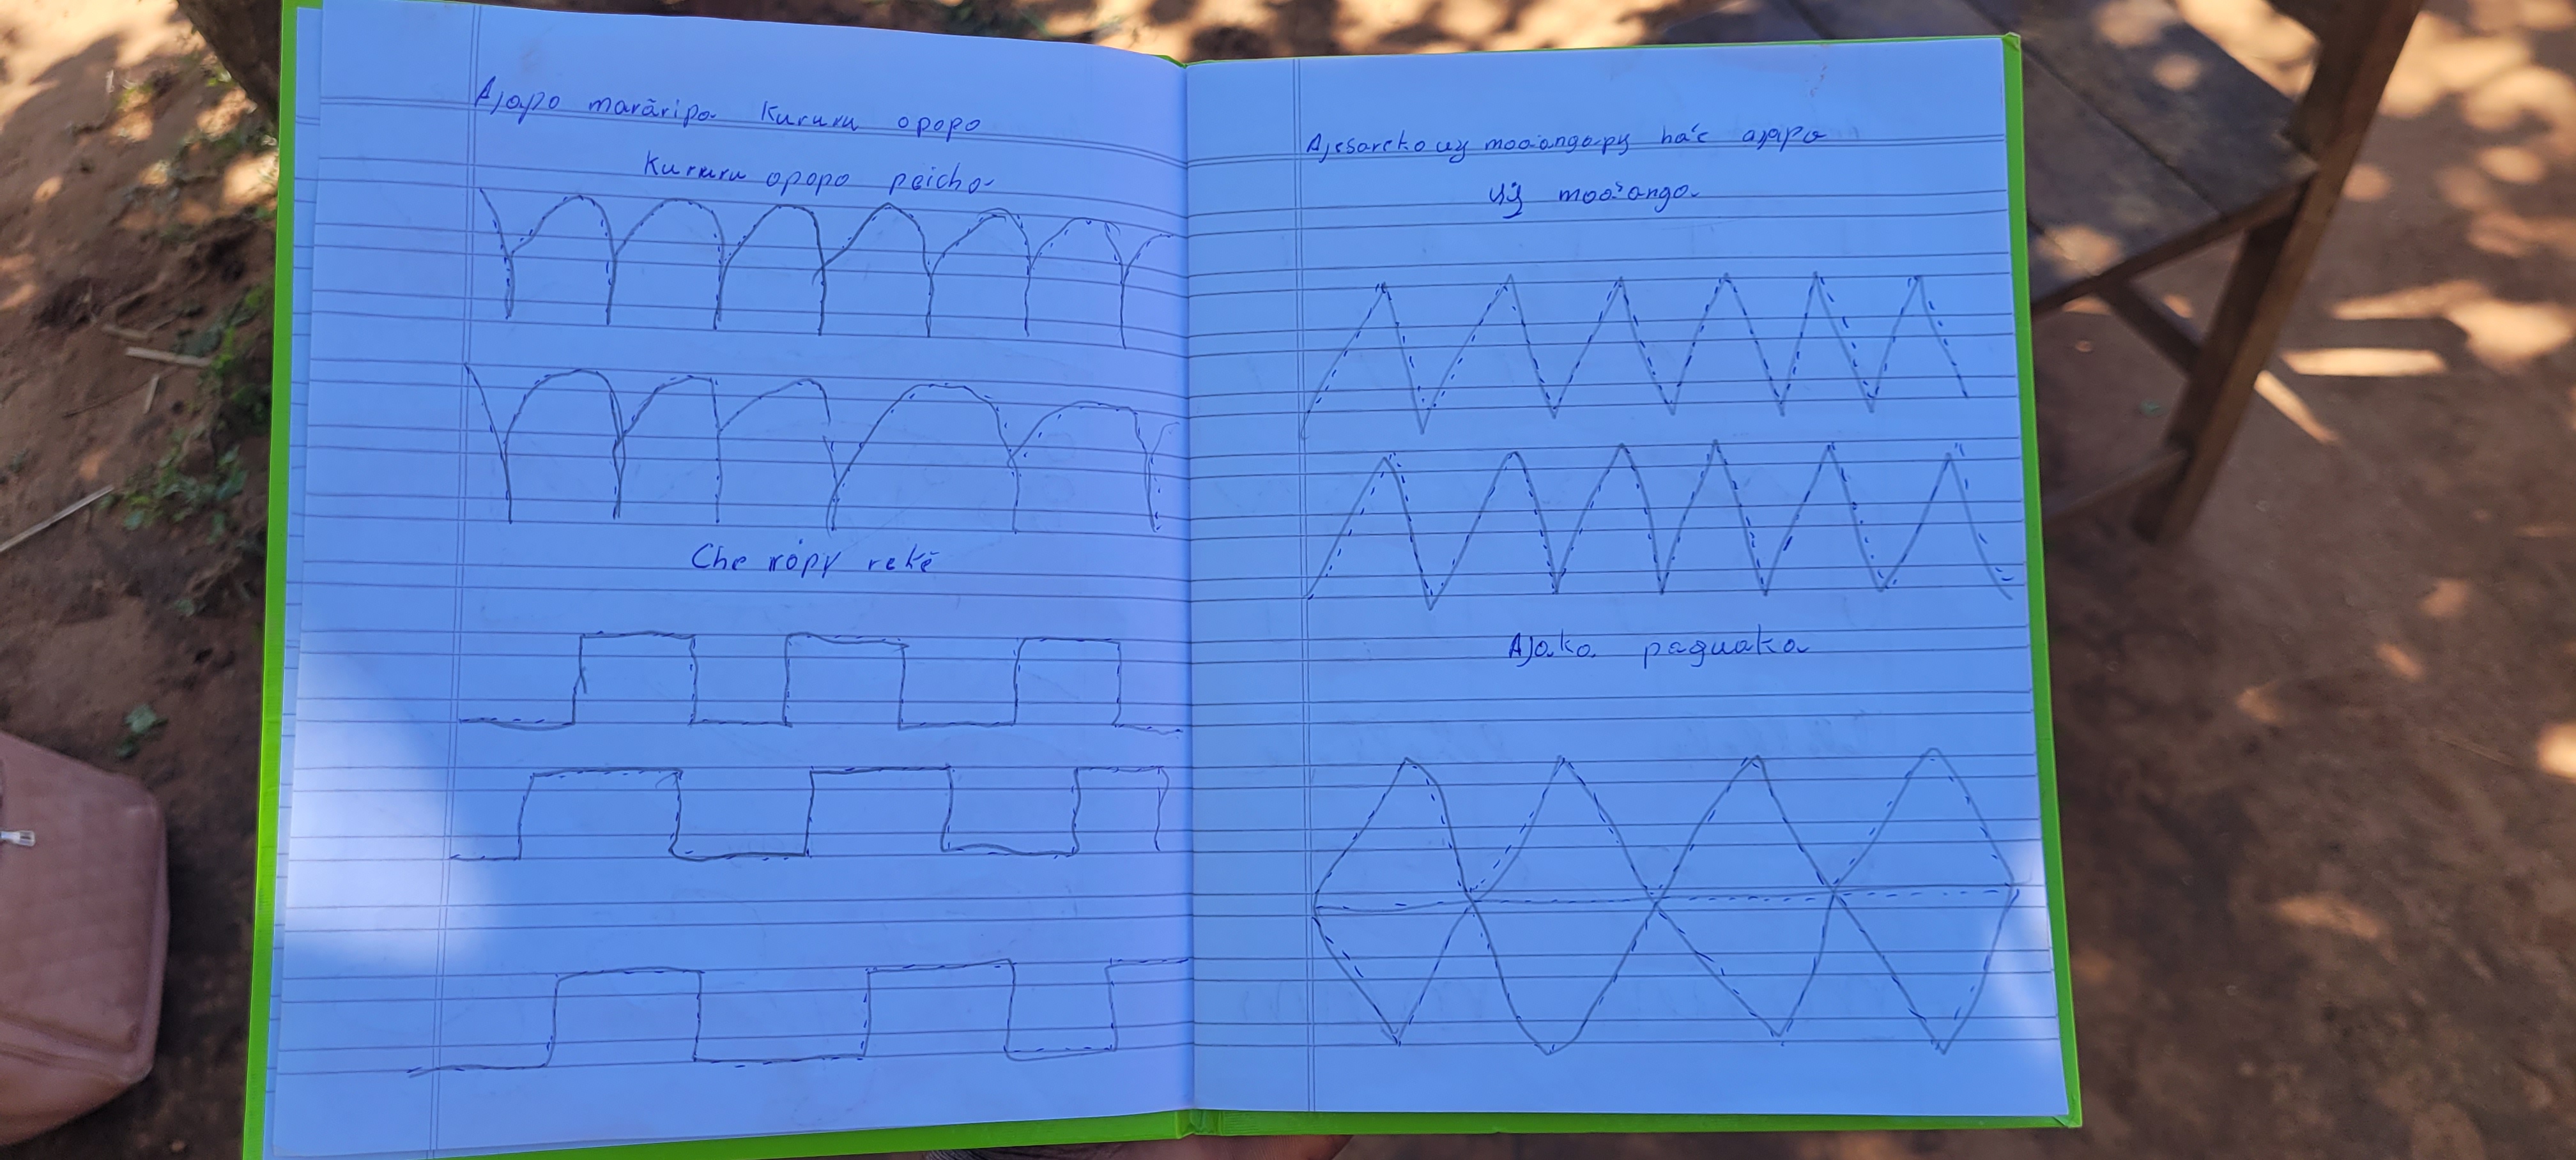 Ajapo marãripa Kururu opopo
Kururu opopo peicha
Che rópy rekẽ
Ajesareko uy moa'angapy ha'e ajapo
uỹ moa'anga
Ajaka peguaka